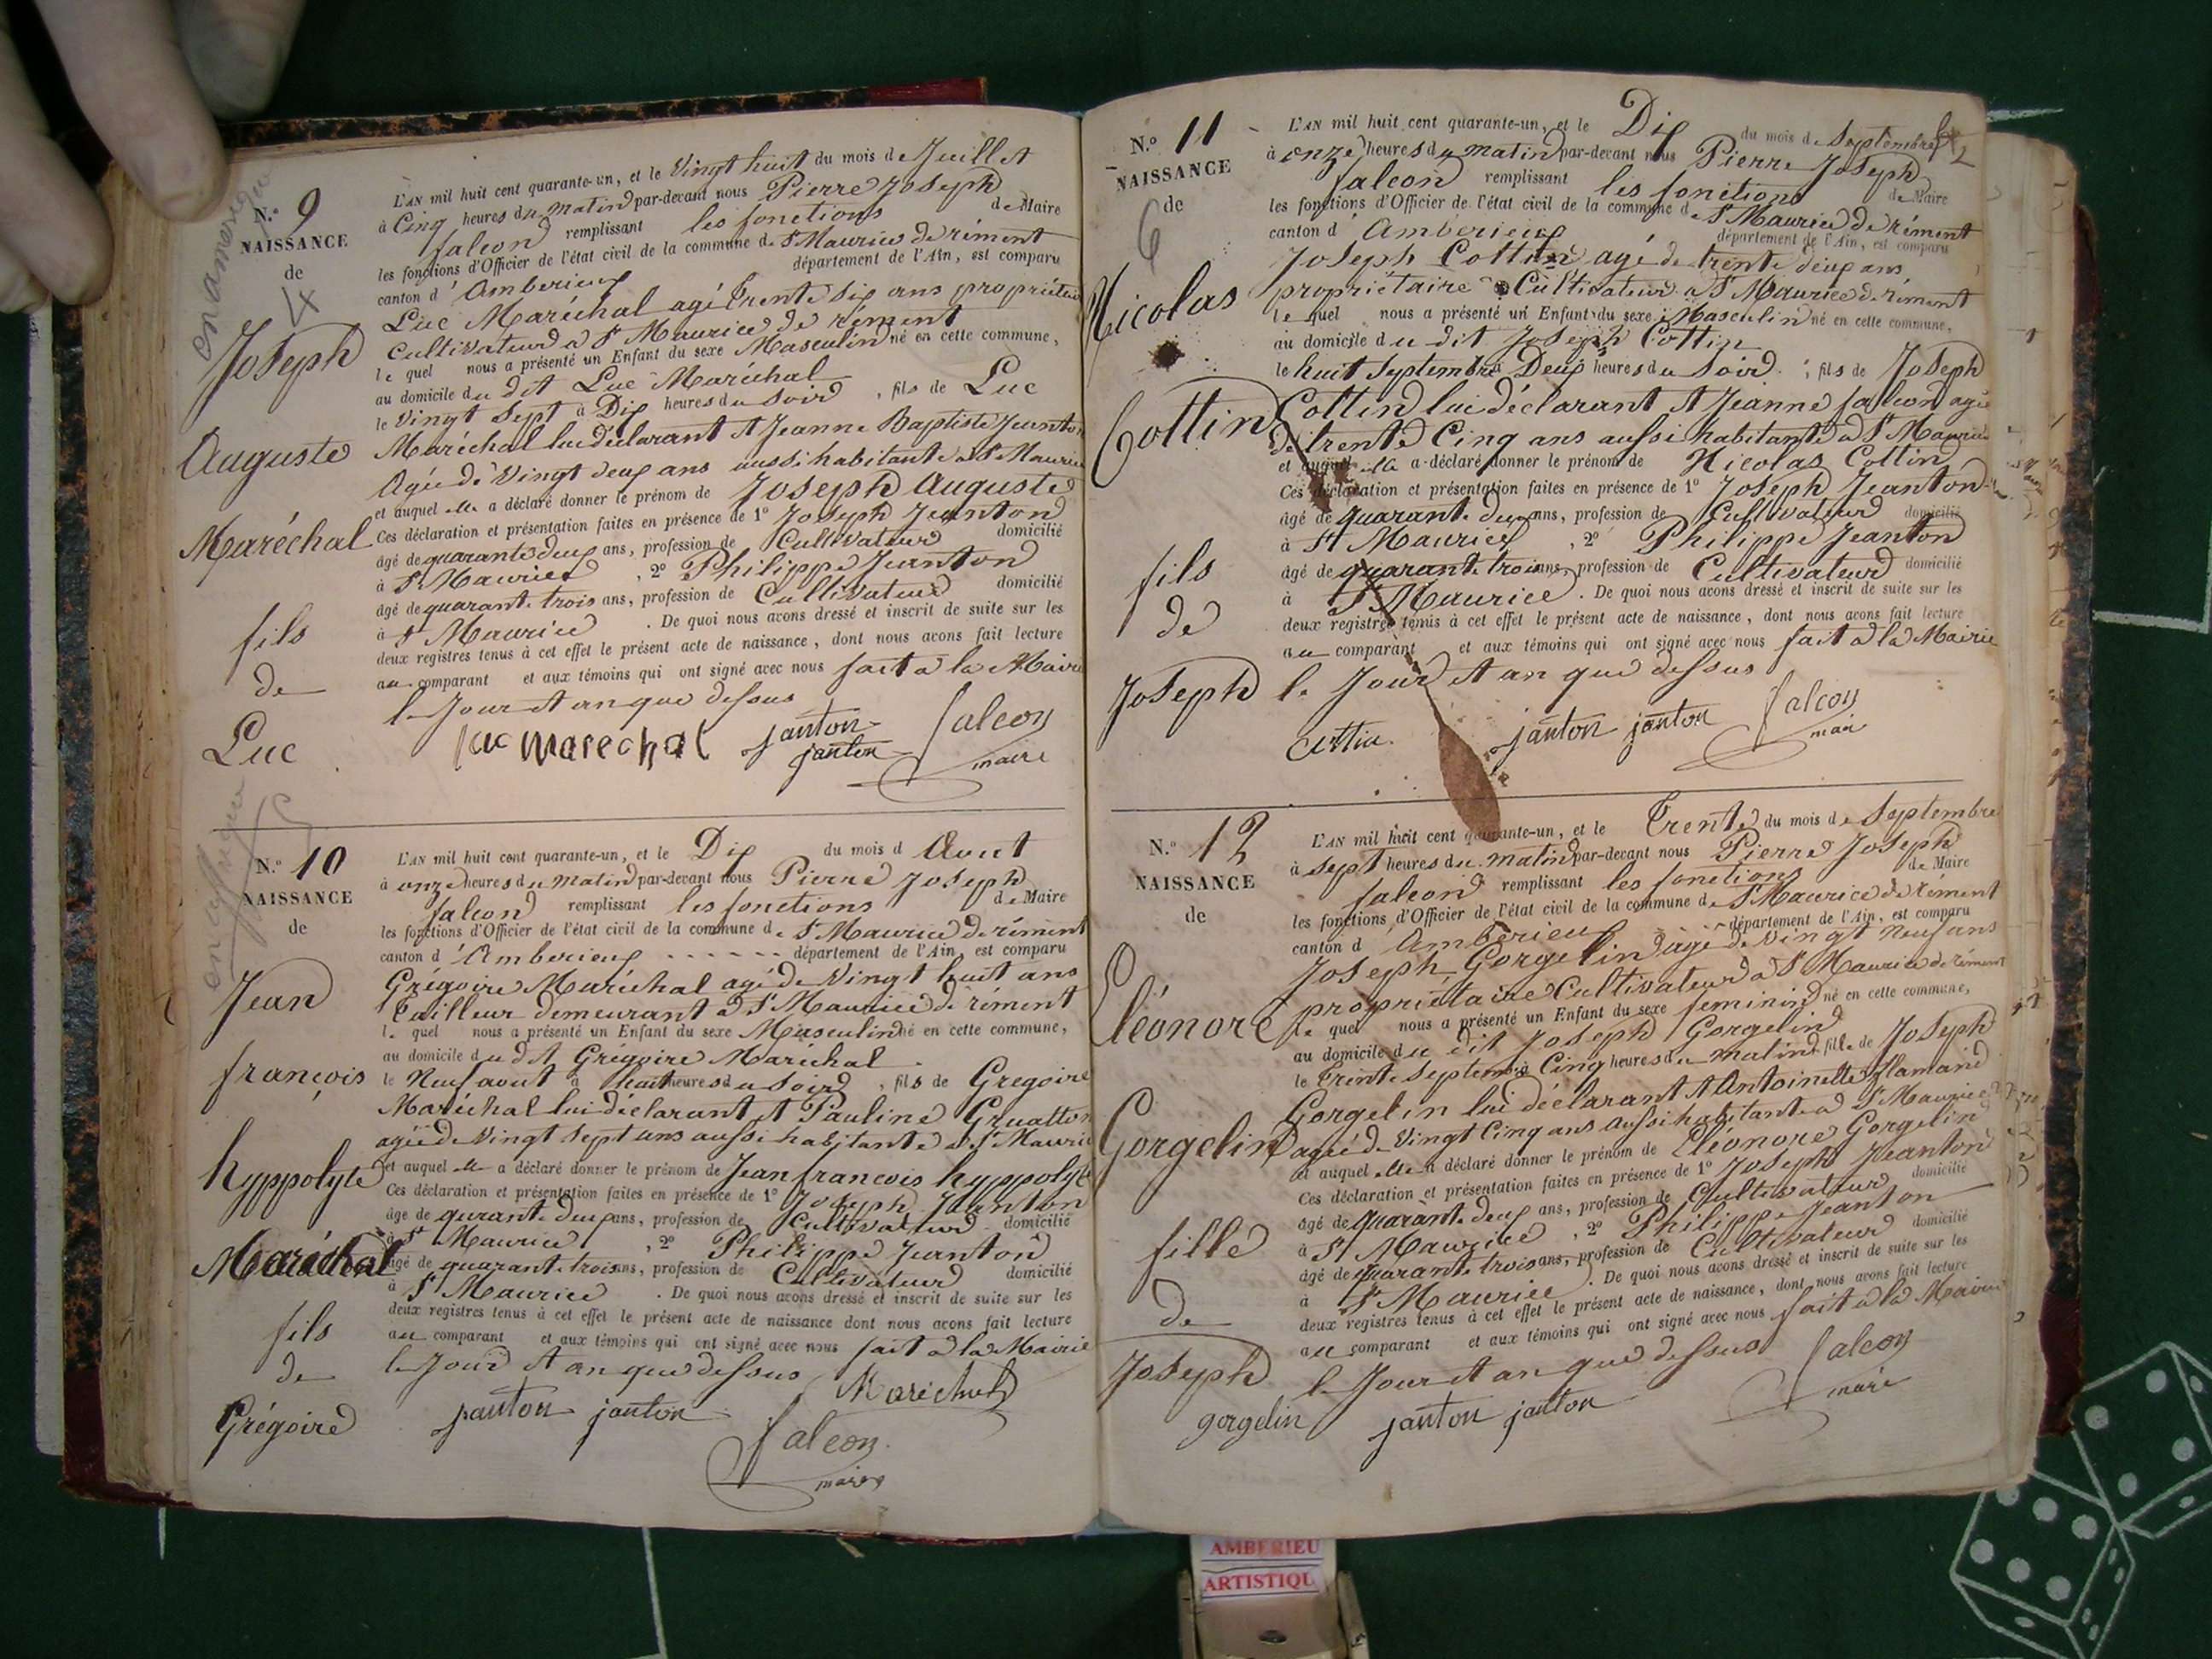 N.° 9
NAISSANCE
de
4
Joseph
Auguste
Maréchal
fils
de
Luc
L'AN mil huit cent quarante-un, et le Vingt huit du mois de Juillet
à Cinq heures du matin par-devant nous Pierre Joseph
falcon remplissant les fonctions de Maire
les fonctions d'Officier de l'état civil de la commune de St Maurice de rément
canton d'Amberieux département de l'Ain, est comparu
Luc Maréchal agé trente six ans propriétaire
Cultivateur à St Maurice de rément
le quel nous a présenté un Enfant du sexe Masculin né en cette commune,
au domicile du dit Luc Maréchal
le Vingt Sept à Dix heures du Soir, fils de Luc
Maréchal lui déclarant et Jeanne Baptiste Jeanton
Agée de Vingt deux ans aussi habitante à St Maurice
et auquel elle a déclaré donner le prénom de Joseph Auguste
Ces déclaration et présentation faites en présence de 1° Joseph Jeanton
âgé de quarante deux ans, profession de Cultivateur domicilié
à St Maurice, 2° Philippe Jeanton
âgé de quarante trois ans, profession de Cultivateur domicilié
à St Maurice. De quoi nous avons dressé et inscrit de suite sur les
deux registres tenus à cet effet le présent acte de naissance, dont nous avons fait lecture
au comparant et aux témoins qui ont signé avec nous fait à la Mairie
le Jour et an que dessus
luc marechal janton janton falcon
maire
N.° 10
NAISSANCE
de
Jean
françois
hyppolyte
Maréchal
fils
de
Grégoire
L'AN mil huit cent quarante-un, et le Dix du mois d Aout
à onze heures du matin par-devant nous Pierre Joseph
falcon remplissant les fonctions de Maire
les fonctions d'Officier de l'état civil de la commune de St Maurice de rément
canton d'Amberieux département de l'Ain, est comparu
Grégoire Maréchal agé de Vingt huit ans
Tailleur demeurant à St Maurice de rément
le quel nous a présenté un Enfant du sexe Masculin né en cette commune,
au domicile du dit Grégoire Maréchal
le Neuf aout à huit heures du Soir, fils de Gregoire
Maréchal lui déclarant et Pauline Gruatton
agée de Vingt Sept ans aussi habitante à St Maurice
et auquel elle a déclaré donner le prénom de Jean francois hyppolyte
Ces déclaration et présentation faites en présence de 1° Joseph Jeanton
âgé de qurante deux ans, profession de Cultivateur domicilié
à St Maurice, 2° Philippe Jeanton
âgé de quarante trois ans, profession de Cultivateur domicilié
à St Maurice. De quoi nous avons dressé et inscrit de suite sur les
deux registres tenus à cet effet le présent acte de naissance dont nous avons fait lecture
au comparant et aux témoins qui ont signé avec nous fait à la Mairie
le Jour et an que dessus Maréchal
janton janton falcon
maire
N.° 11
NAISSANCE
de
6
Nicolas
Cottin
fils
de
Joseph
L'AN mil huit cent quarante-un, et le Dix du mois de Septembre
à onze heures du matin par-devant nous Pierre Joseph
falcon remplissant les fonctions de Maire
les fonctions d'Officier de l'état civil de la commune de St Maurice de rément
canton d'Amberieux département de l'Ain, est comparu
Joseph Cottin agé de trente deux ans
propriétaire Cultivateur à St Maurice de rément
le quel nous a présenté un Enfant du sexe Masculin né en cette commune,
au domicile du dit Joseph Cottin
le huit Septembre à Deux heures du Soir, fils de Joseph
Cottin lui déclarant et Jeanne falcon agée
de trente Cinq ans aussi habitante à St Maurice
et auquel elle a déclaré donner le prénom de Nicolas Cottin
Ces déclaration et présentation faites en présence de 1° Joseph Jeanton
âgé de quarante deux ans, profession de Cultivateur domicilié
à St Maurice, 2° Philippe Jeanton
âgé de quarante trois ans, profession de Cultivateur domicilié
à St Maurice. De quoi nous avons dressé et inscrit de suite sur les
deux registres tenus à cet effet le présent acte de naissance, dont nous avons fait lecture
au comparant et aux témoins qui ont signé avec nous fait à la Mairie
le Jour et an que dessus
Cottin. janton janton falcon
maire
N.° 12
NAISSANCE
de
Eléonore
Gorgelin
fille
de
Joseph
L'AN mil huit cent quarante-un, et le Trente du mois de Septembre
à sept heures du matin par-devant nous Pierre Joseph
falcon remplissant les fonctions de Maire
les fonctions d'Officier de l'état civil de la commune de St Maurice de rément
canton d Amberieux département de l'Ain, est comparu
Joseph Gorgelin agé de Vingt Neuf ans
propriétaire Cultivateur à St Maurice de rément
le quel nous a présenté un Enfant du sexe feminin né en cette commune,
au domicile du dit Joseph Gorgelin
le Trente Septembre à Cinq heures du matin, fille de Joseph
Gorgelin lui déclarant et Antoinette flamand
agée de Vingt Cinq ans aussi habitante à St Maurice
et auquel elle a déclaré donner le prénom de Eléonore Gorgelin
Ces déclaration et présentation faites en présence de 1° Joseph Jeanton
âgé de quarante deux ans, profession de Cultivateur domicilié
à St Maurice, 2° Philippe Jeanton
âgé de quarante trois ans, profession de Cultivateur domicilié
à St Maurice. De quoi nous avons dressé et inscrit de suite sur les
deux registres tenus à cet effet le présent acte de naissance, dont nous avons fait lecture
au comparant et aux témoins qui ont signé avec nous fait à la Mairie
le Jour et an que dessus falcon
gorgelin janton janton maire
AMBERIEU
ARTISTIQU